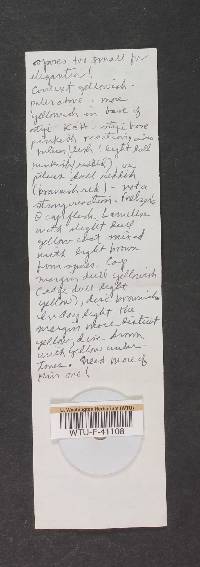 spores too small for
elegantior!
Context yellowish -
pale above, more
yellowish in base of
stipe. KOH - stipe base
pinkish reaction; also
(light dull
pinkish/reddish) or
place dull reddish
(brownish red) - not a
strong reaction. Negligible
@ cap flesh. Lamellae
with slight dull
yellow cast mixed
with light brown
from spores. Cap
margin dull yellowish
(edge dull light
yellow), disc brownish
by daylight the
margin more distinct
yellow, disc brown
with yellow under
tones. Need more of
this one!
U. Washington Herbarium (WTU)
WTU-F-41108